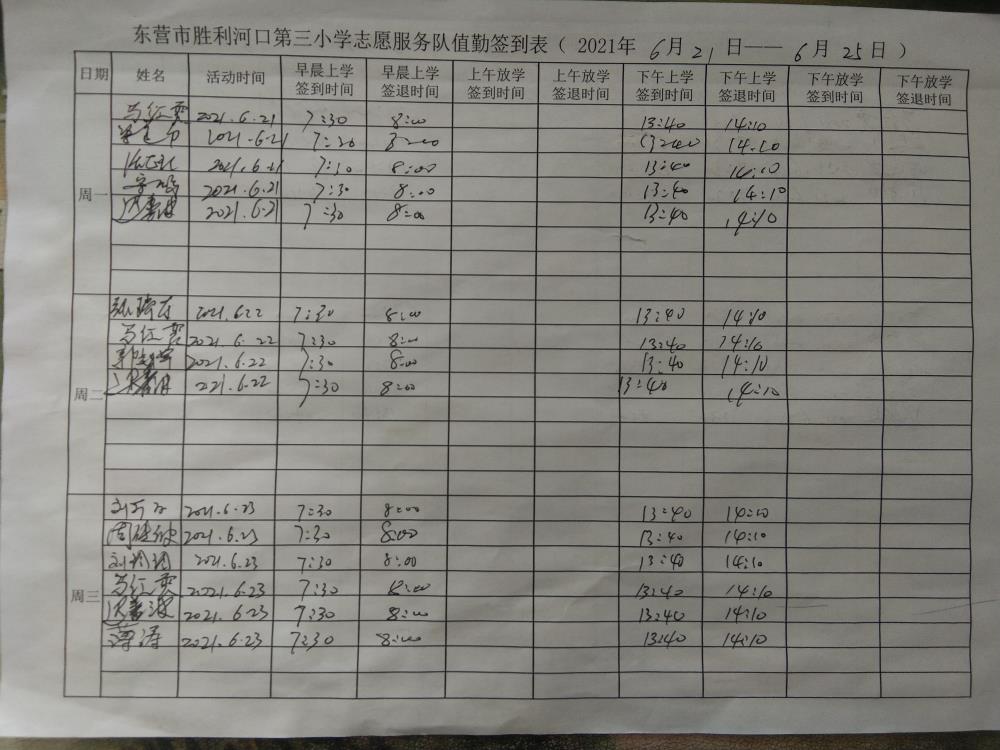 东营市胜利河口第三小学志愿服务队值勤签到表（2021年 6月21日——6月25日）
日期 姓名 活动时间 早晨上学签到时间 早晨上学签退时间 上午放学签到时间 上午放学签退时间 下午上学签到时间 下午上学签退时间 下午放学签到时间 下午放学签退时间
周一
2021.6.21 7:30 8:00 13:40 14:10
2021.6.21 7:20 8:00 13:40 14:10
2021.6.21 7:30 8:00 13:40 14:10
2021.6.21 7:30 8:00 13:40 14:10
2021.6.21 7:30 8:00 13:40 14:10
周二
2021.6.22 7:30 8:00 13:40 14:10
2021.6.22 7:30 8:00 13:40 14:10
2021.6.22 7:30 8:00 13:40 14:10
2021.6.22 7:30 8:00 13:40 14:10
周三
2021.6.23 7:30 8:00 13:40 14:10
2021.6.23 7:30 8:00 13:40 14:10
2021.6.23 7:30 8:00 13:40 14:10
2021.6.23 7:30 8:00 13:40 14:10
2021.6.23 7:30 8:00 13:40 14:10
薄涛 2021.6.23 7:30 8:00 13:40 14:10